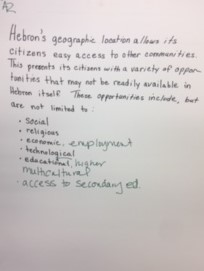 A2
Hebron's geographic location allows its
citizens easy access to other communities.
This presents its citizens with a variety of oppor-
tunities that may not be readily available in
Hebron itself. These opportunities include, but
are not limited to:
• social
• religious
• economic, employment
• technological
• educational, higher
multicultural
• access to secondary ed.